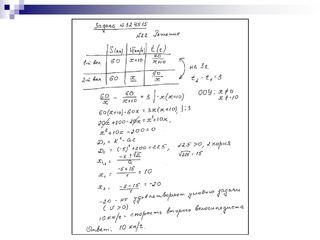 Задача
№22 Решение
S(км) V(км/ч) t(ч)
1-й вел 60 x+10 60/x+10 на 3ч
2-й вел 60 x 60/x t₂ - t₁ = 3
60/x - 60/x+10 = 3 |·x(x+10) ОДЗ: x≠0
x≠-10
60(x+10)-60x = 3x(x+10) |:3
20x+200-20x = x²+10x,
x²+10x-200=0
D₁ = k²-ac
D₁ = (-5)²+200=225, 225>0, 2 корня
√225 = 15
x₁,₂ = -k±√D₁/a
x₁ = -5+15/1 = 10
x₂ = -5-15/1 = -20
-20 - не удовлетворяет условию задачи
(V>0)
10 км/ч - скорость второго велосипедиста
Ответ: 10 км/ч.